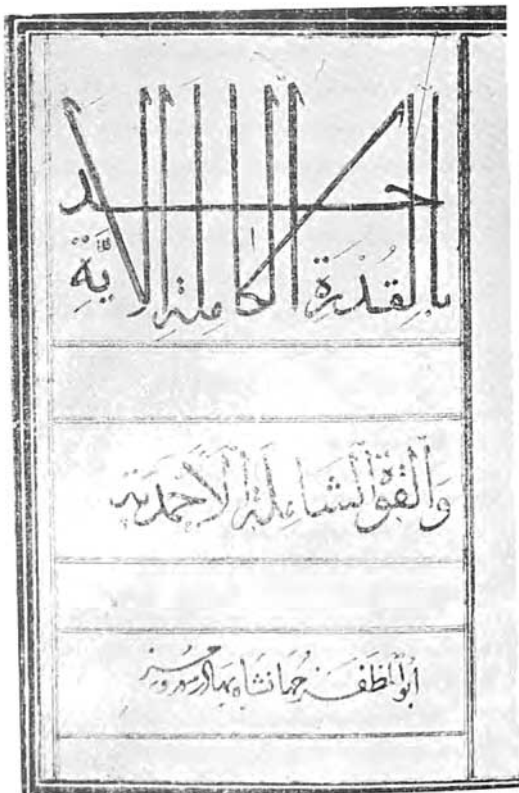 بالقدرة الكاملة الاحدية
والقوة الشاملة الاحمدية
ابو المظفر جهانشاه بهادر